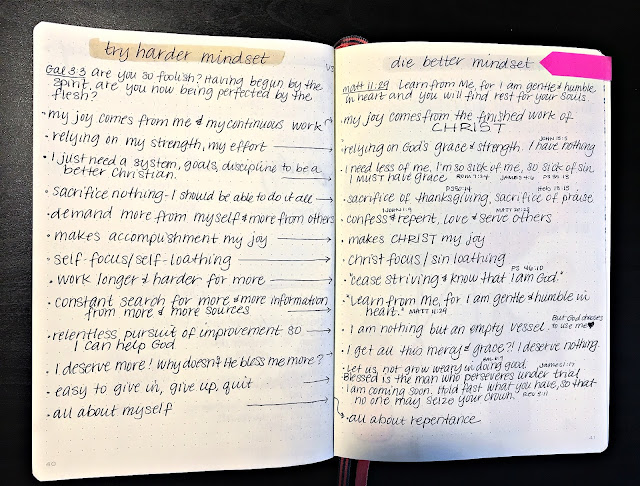 try harder mindset
vs
Gal 3:3 are you so foolish? Having begun by the
spirit, are you now being perfected by the
flesh?
• my joy comes from me & my continuous work
• relying on my strength, my effort
• I just need a system, goals, discipline to be a
better Christian.
• sacrifice nothing - I should be able to do it all
• demand more from myself & more from others
• makes accomplishment my joy
• self-focus/self-loathing
• work longer & harder for more
• constant search for more & more information
from more & more sources
• relentless pursuit of improvement so
I can help God
• I deserve more! Why doesn't He bless me more?
• easy to give in, give up, quit
• all about myself
40
die better mindset
Matt 11:29 Learn from Me, for I am gentle & humble
in heart and you will find rest for your souls.
• my joy comes from the finished work of
CHRIST
JOHN 15:5
• relying on God's grace & strength. I have nothing
• I need less of me, I'm so sick of me, so sick of sin
I must have grace ROM 7:24 JAMES 4:6 PS 38:18
PS 50:14 Heb 13:15
• sacrifice of thanksgiving, sacrifice of praise
1 JOHN 1:9
• confess & repent, Love & serve others
• makes CHRIST my joy
• christ focus/ sin loathing
PS 46:10
• "cease striving & know that I am God."
• "Learn from Me, for I am gentle & humble in
heart." MATT 11:29
But God chooses
• I am nothing but an empty vessel. to use me♥
• I get all this mercy & grace?! I deserve nothing.
Let us, not grow weary in doing good. James 1:12
Blessed is the man who perseveres under trial
I am coming soon. Hold fast what you have, so that
no one may seize your crown." Rev 3:11
• all about repentance
41